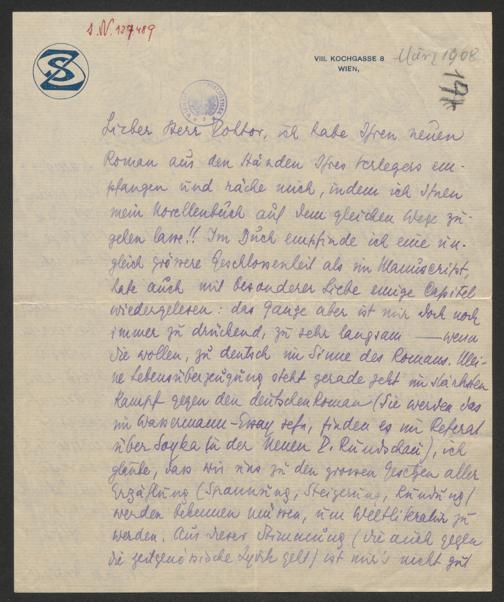 S.N. 127489
SZ
VIII. KOCHGASSE 8
WIEN,
März 1908
19
Lieber Herr Doktor, ich habe Ihren neuen
Roman aus den Händen Ihres Verlegers em-
pfangen und räche mich, indem ich Ihnen
mein Novellenbuch auf dem gleichen Wege zu-
gehen lasse!! Im Buch empfinde ich eine un-
gleich grössere Geschlossenheit als im Manuscript,
habe auch mit besonderer Liebe einige Capitel
wiedergelesen: das Ganze aber ist mir doch noch
immer zu drückend, zu sehr langsam — wenn
Sie wollen, zu deutsch im Sinne des Romans. Mei-
ne Lebensüberzeugung steht gerade jetzt im stärksten
Kampf gegen den deutschen Roman (Sie werden das
im Wassermann-Essay sehn, finden es im Referat
über Soyka in der Neuen D. Rundschau), ich
glaube, dass wir uns zu den grossen Gesetzen aller
Erzählung (Spannung, Steigerung, Rundung)
werden bekennen müssen, um Weltliteratur zu
werden. Aus dieser Stimmung (die auch gegen
die zeitgenössische Lyrik geht) ist mir's nicht gut